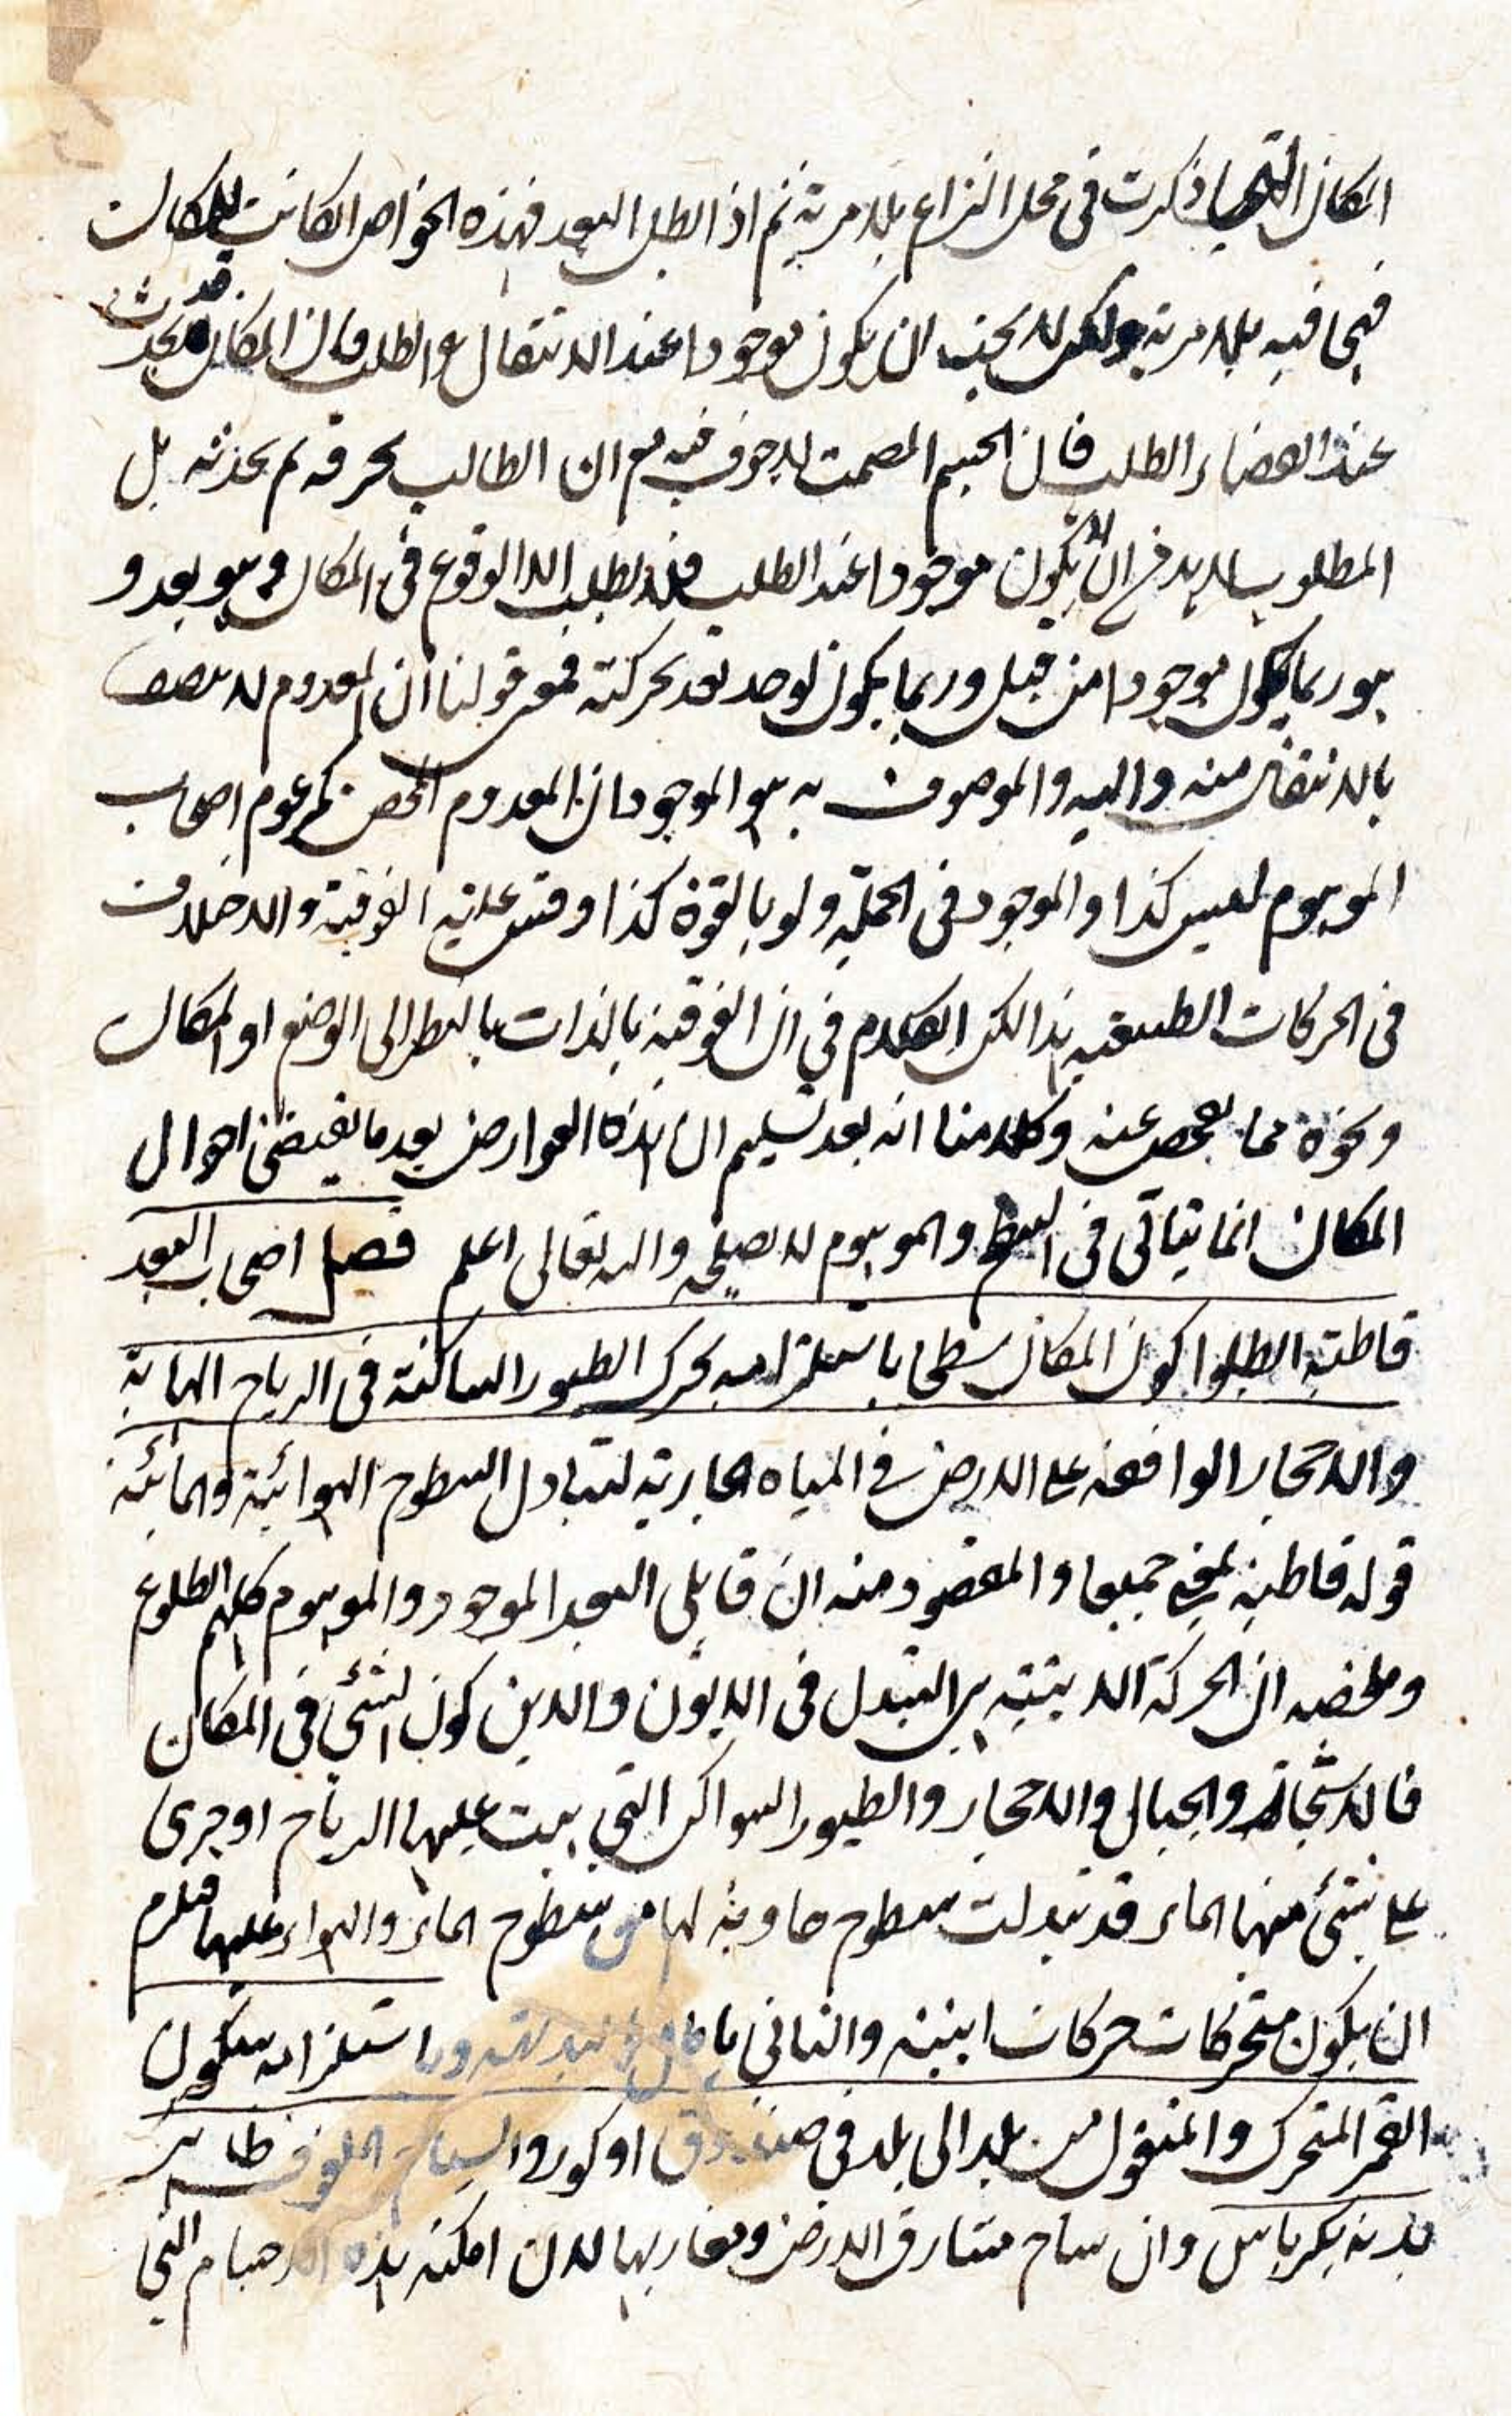 المكان التى ذكرت فى محل النزاع بلا مرية ثم اذا بطل البعد فهذه الخواص الكانت للمكان
فهى فيه بلا مرية ولكن لا يجب ان يكون موجودا عند الانتقال والطلب فان المكان قد يحدث
عند انقضاء الطلب فان الجسم المصمت لا جوف فيه مع ان الطالب بحرقه لم يحدثه بل
المطلوب لا بد فى ان لا يكون موجودا عند الطلب فلا يطلب الا الوقوع فى المكان وهو بعد و
هو ربما يكون موجودا من قبل وربما يكون يوجد بعد بحركته فمعنى قولنا ان المعدوم لا يتصف
بالانتقال منه واليه والموصوف به هو الموجود ان المعدوم المحض كمزعوم اصحاب
الموهوم ليس كذا والموجود فى الجملة ولو بالقوة كذا وقس عليه الفوقية والاختلاف
فى الحركات الطبيعية هذا لكن الكلام فى ان الفوقية بالذات بالنظر الى الوضع او المكان
ونحوه مما يفحص عنه وكلامنا انه بعد تسليم ان هذه العوارض بعد ما يقتضى احوال
المكان انما يتاتى فى السطح والموهوم لا يصلح والله تعالى اعلم فصل اصحاب البعد
قاطبة ابطلوا كون المكان سطحا باستلزامه تحرك الطيور الساكنة فى الرياح الهابة
والاحجار الواقعة على الارض فى المياه الجارية لتبادل السطوح الهوائية والمائية
قوله قاطبة بمعنى جميعا والمقصود منه ان قابلى البعد الموجود والموهوم كلهم ابطلوه
وملخصه ان الحركة الاينية هى التبدل فى الايون والاين كون الشئ فى المكان
فالاشجار والجبال والاحجار والطيور السواكن التى هبت عليها الرياح او جرى
على شئ منها الماء قد تبدلت سطوح حاوية لها من سطوح الماء والهواء عليها فلزم
ان يكون متحركات حركات اينية والثانى باطل بالبديهة وباستلزامه سكون
القمر المتحرك والمنقول من بلد الى بلد فى صندوق او كوز والسياح الملفوف ظاهر
بدنه بكرباس وان ساح مشارق الارض ومغاربها لان امكنة هذه الاجسام التى